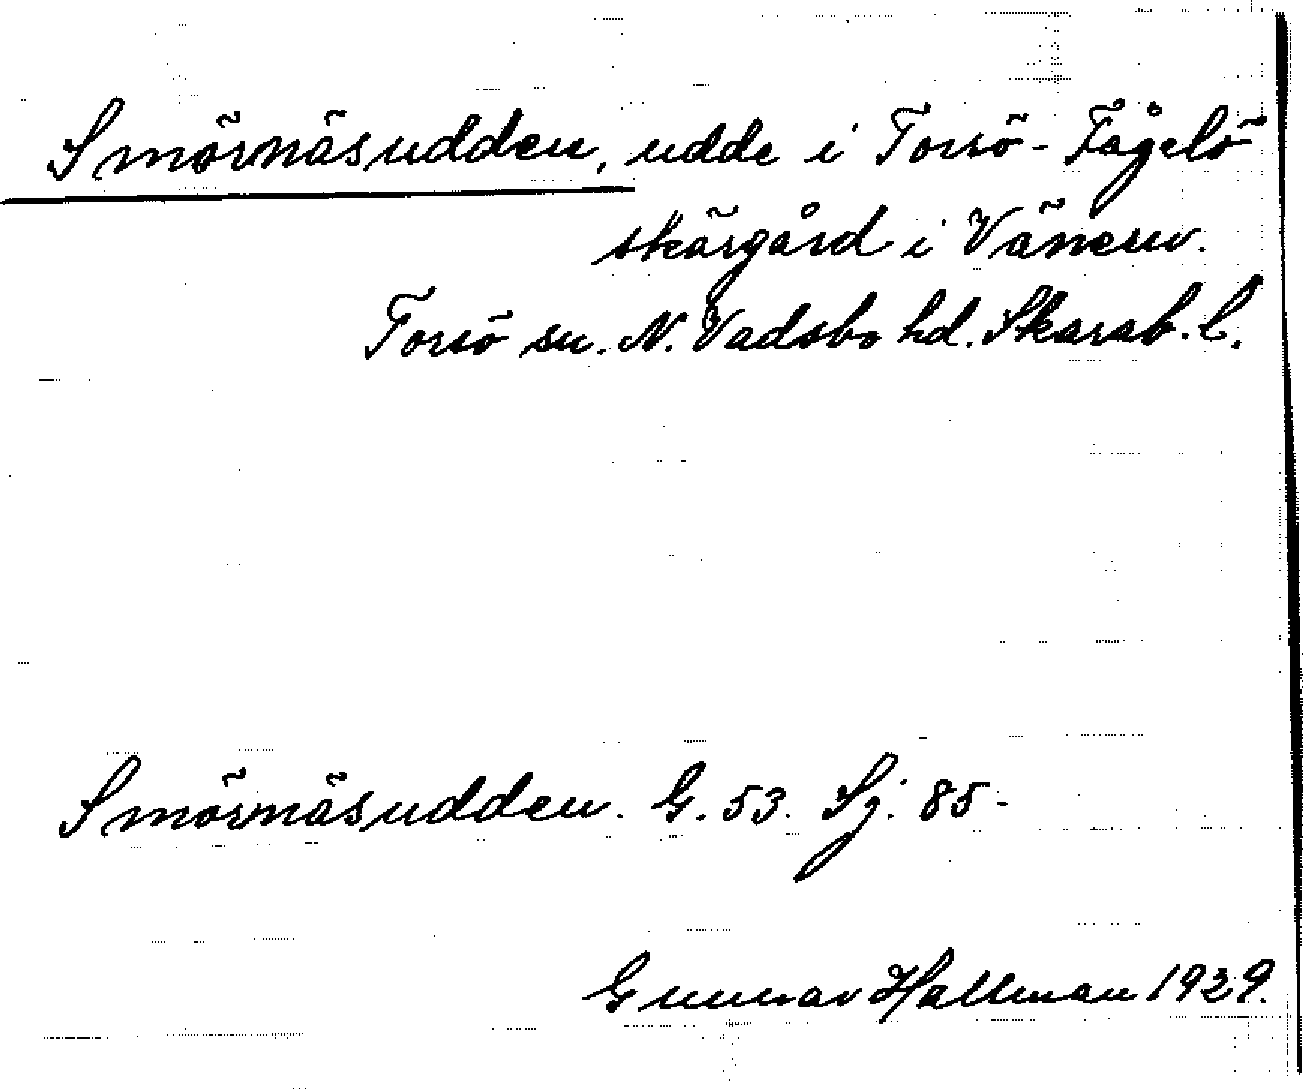 Smörnäsudden, udde i Torsö - Fågelö
skärgård i Vänern.
Torsö sn. N. Vadsbo hd. Skarab. l.
Smörnäsudden. G. 53. Sj. 85-
Gunnar Hallman 1929.